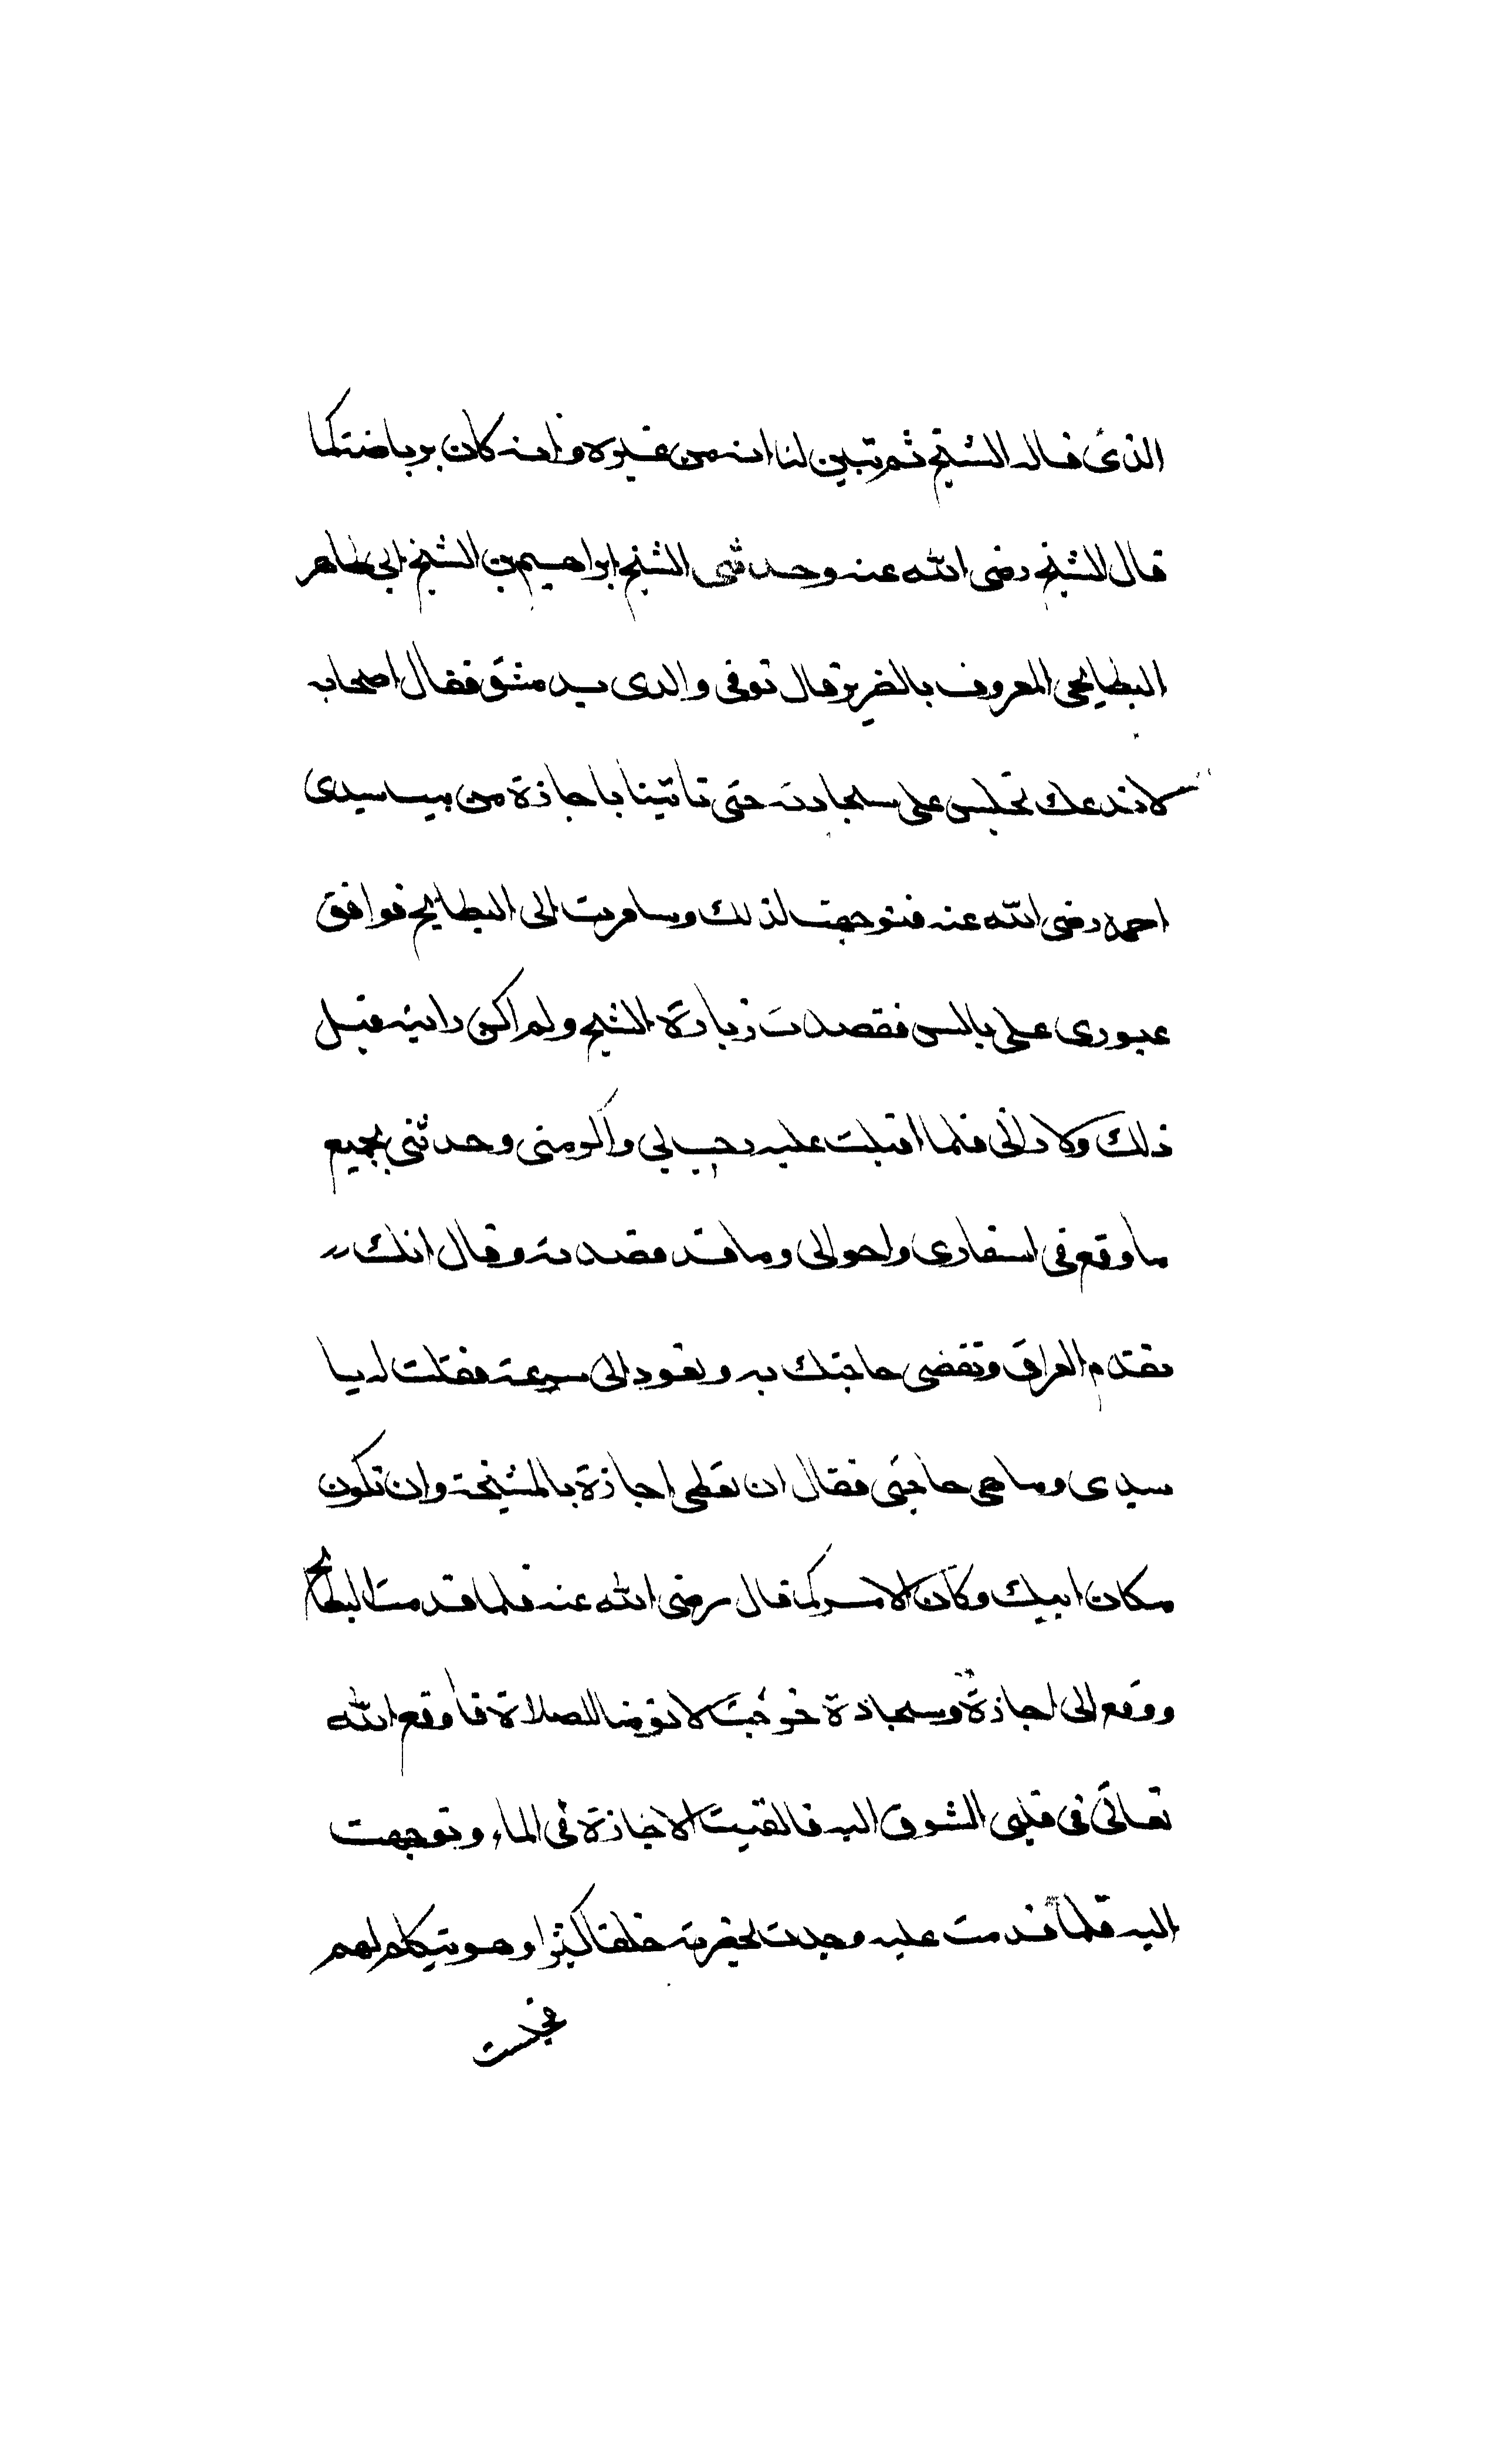 الذى قاله الشيخ ثم تبين لنا انه من غيره وانه كان برياضتكما
قال الشيخ رضى الله عنه وحدثنى الشيخ ابراهيم بن الشيخ ابى طاهر
البطايحى المعروف بالضرير قال توفى والدى بدمشق فقال اصحابه
لا ندعك تجلس على سجادته حتى تاتينا باجازة من بيت سيدى
احمد رضى الله عنه فتوجهت لذلك وسافرت الى البطايح فوافق
عبورى على بالس فقصدت زيارة الشيخ ولم اكن رايته قبل
ذلك ولا رانى فلما اقبلت عليه رحب بى واكرمنى وحدثنى بجميع
ما وقع فى اسفارى واحوالى وما قد قصدته وقال انك
تقدم العراق وتقضى حاجتك به وتعود الى سرعة فقلت له يا
سيدى وما هى حاجتى فقال ان تعطى اجازة بالمشيخة وان تكون
مكان ابيك وكان الامر كما قال رضى الله عنه فلما قدمت البطايح
ووقع لى اجازة وسجادة خرجت لاتوضا للصلاة فاوقع الله
تعالى فى قلبى الشوق اليه فالقيت الاجازة فى الماء وتوجهت
اليه فلما قدمت عليه وجدت بحضرته خلقا كثيرا وهو يتكلم لهم
فجلست